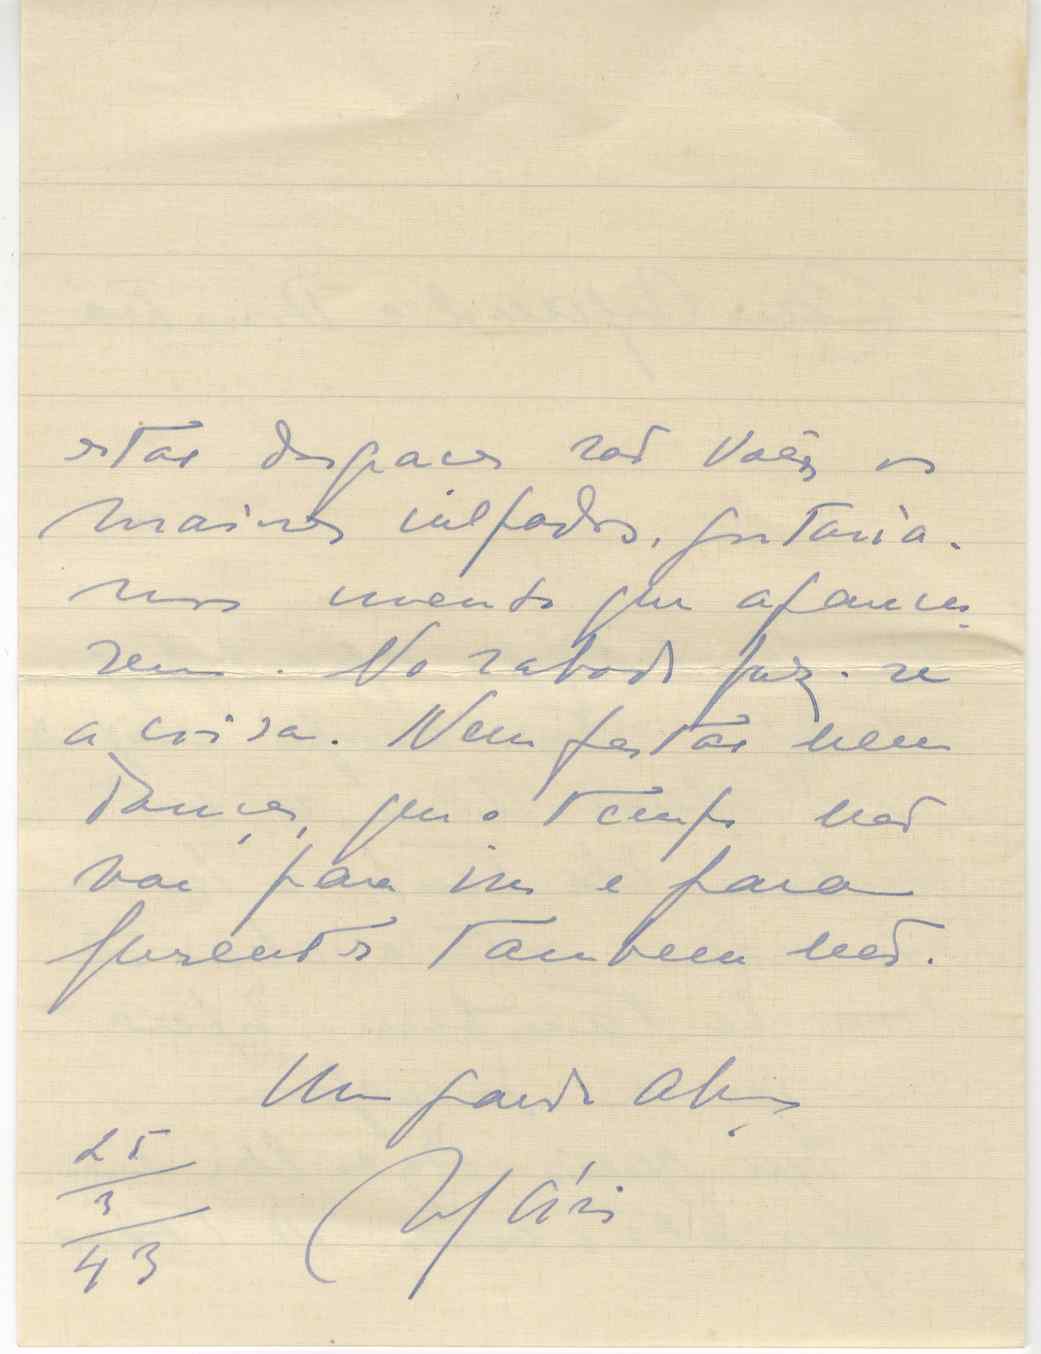 estas desgraças são Vocês os
maiores culpados, gostaria-
mos muito que apareces-
sem. No sabado faz-se
a coisa. Nem festas nem
danças, que o tempo não
vai para isso e para
presentes tambem não.
Um grande abraço
Mário
25
3
43